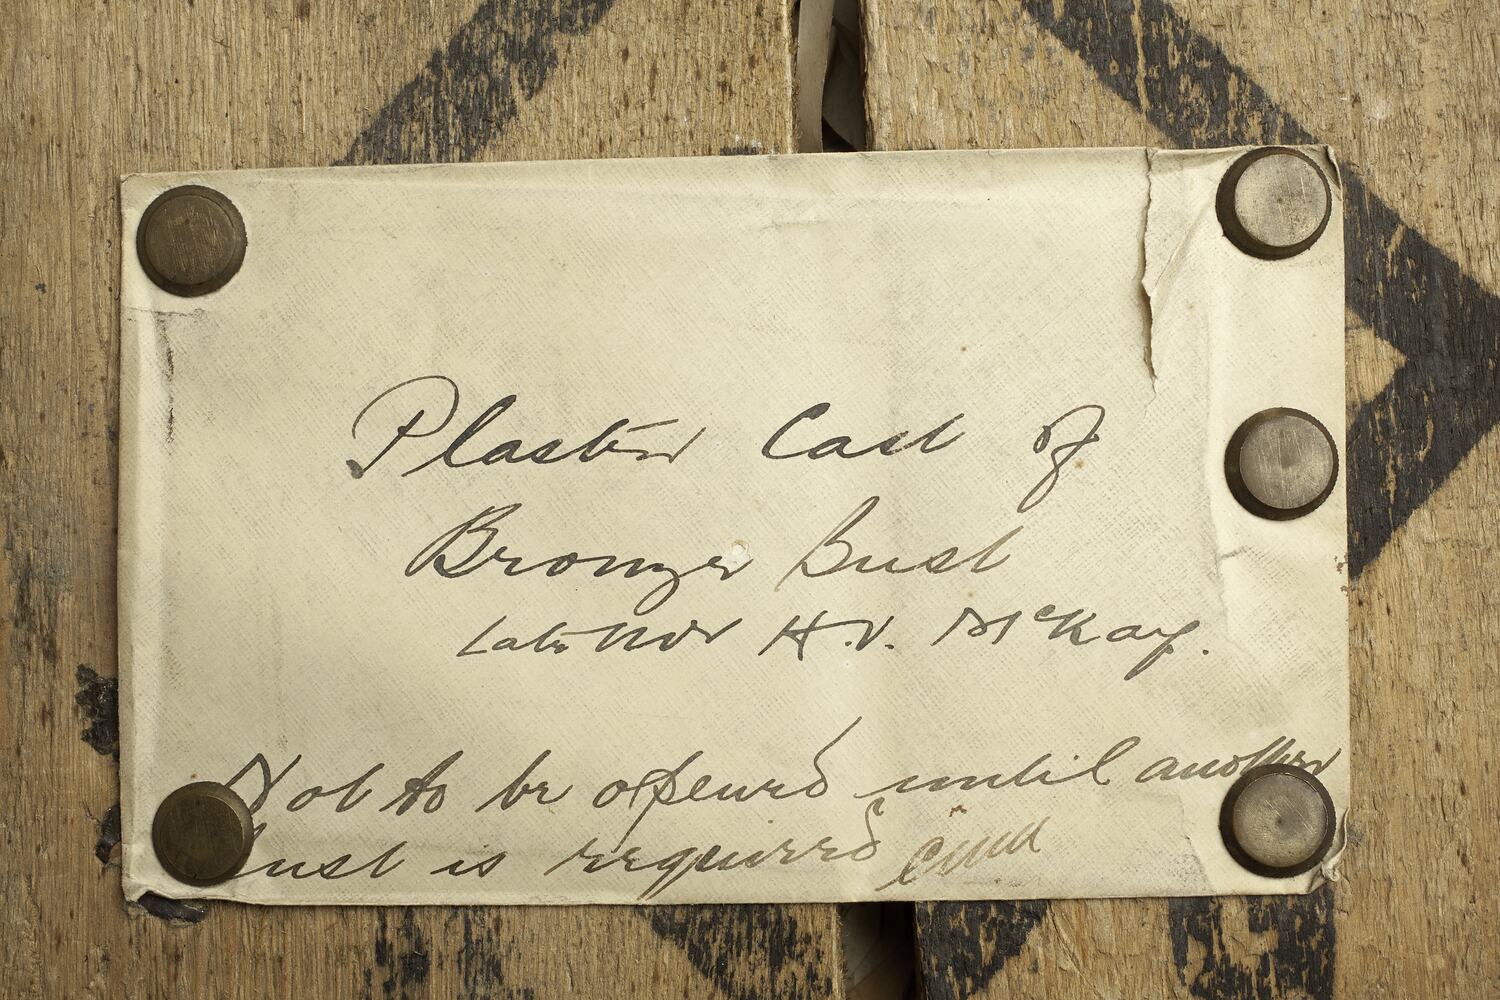 Plaster Cast of
Bronze Bust
Late Hon H.V. McKay.
Not to be opened until another
bust is required